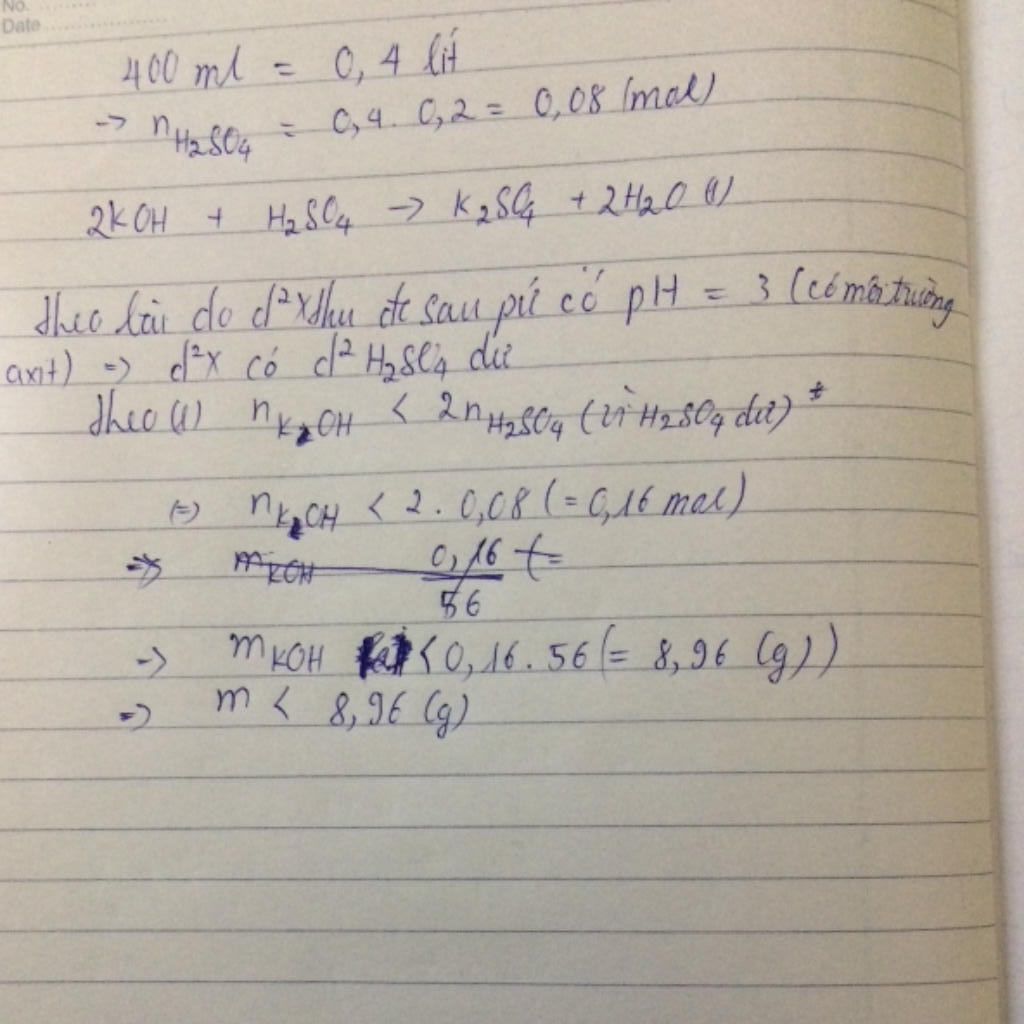 No.
Date
400 ml = 0,4 lít
-> nH₂SO₄ = 0,4 . 0,2 = 0,08 (mol)
2KOH + H₂SO₄ -> K₂SO₄ + 2H₂O (1)
theo bài do d²X thu đc sau pứ có pH = 3 (có môi trường
axit) => d²X có d² H₂SO₄ dư
theo (1) nKOH < 2nH₂SO₄ (vì H₂SO₄ dư) *
=> nKOH < 2 . 0,08 (= 0,16 mol)
=> mKOH 0,16/56 (=
-> mKOH < 0,16 . 56 (= 8,96 (g))
=> m < 8,96 (g)